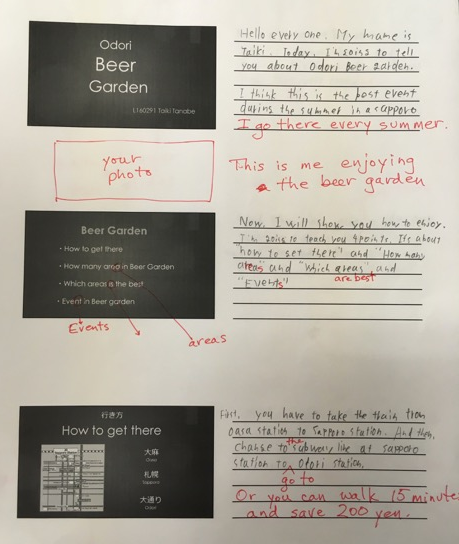 Odori
Beer
Garden
L160291 Taiki Tanabe
Hello every one. My name is
Taiki. Today, I'm going to tell
you about Odori Beer garden.
I think this is the best event
during the summer in a sapporo
I go there every summer.
your
photo
This is me enjoying
the beer garden
Beer Garden
・How to get there
・How many area in Beer Garden
・Which area is the best
・Event in Beer garden
Events
areas
Now, I will show you how to enjoy.
I'm going to teach you 4 points. It's about
"how to get there" and "How many
areas" and "Which areas" and
are best
"Events"
行き方
How to get there
大麻
Oasa
札幌
Sapporo
大通り
Odori
First, you have to take the train from
Oasa station to Sapporo station. And then,
the
change to subway line at sapporo
station to Odori station.
go to
Or you can walk 15 minutes
and save 200 yen.